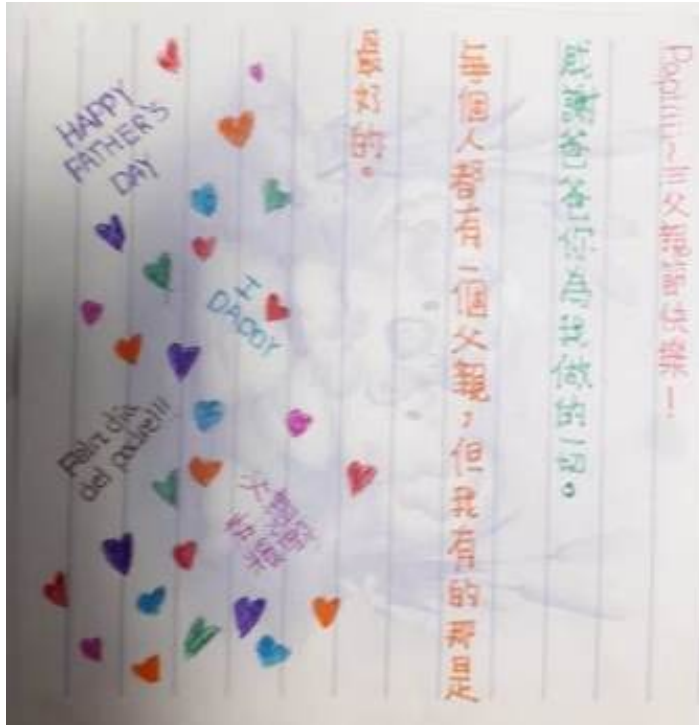 父親節快樂！
感謝爸爸你為我做的一切。
每個人都有一個父親，但我有的那是
最好的。
HAPPY
FATHER'S
DAY
I
DADDY
Feliz día
del padre!!!
父親節
快樂